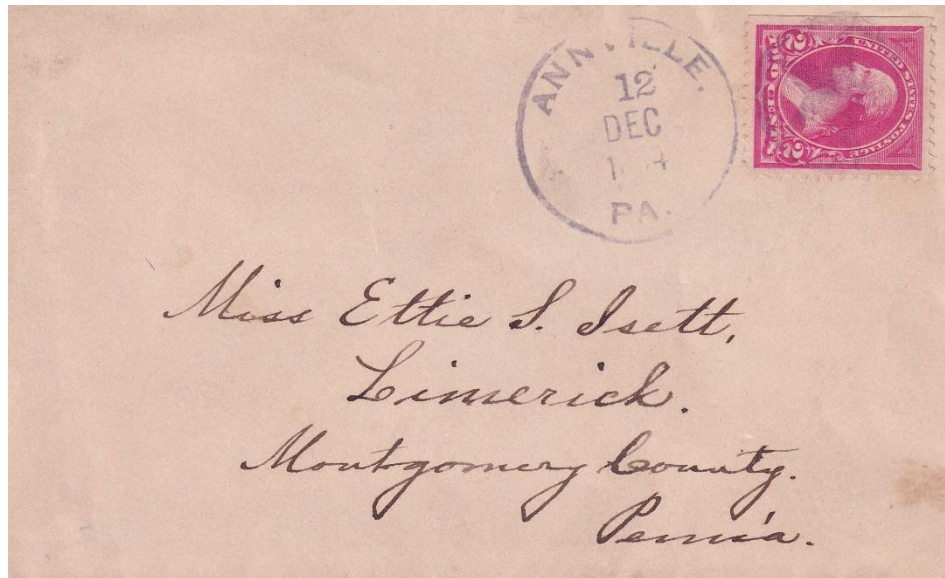 ANNVILLE.
12
DEC
PA.
UNITED STATES POSTAGE
2 TWO CENTS 2
Miss Ettie S. Isett,
Limerick.
Montgomery County.
Penn'a.